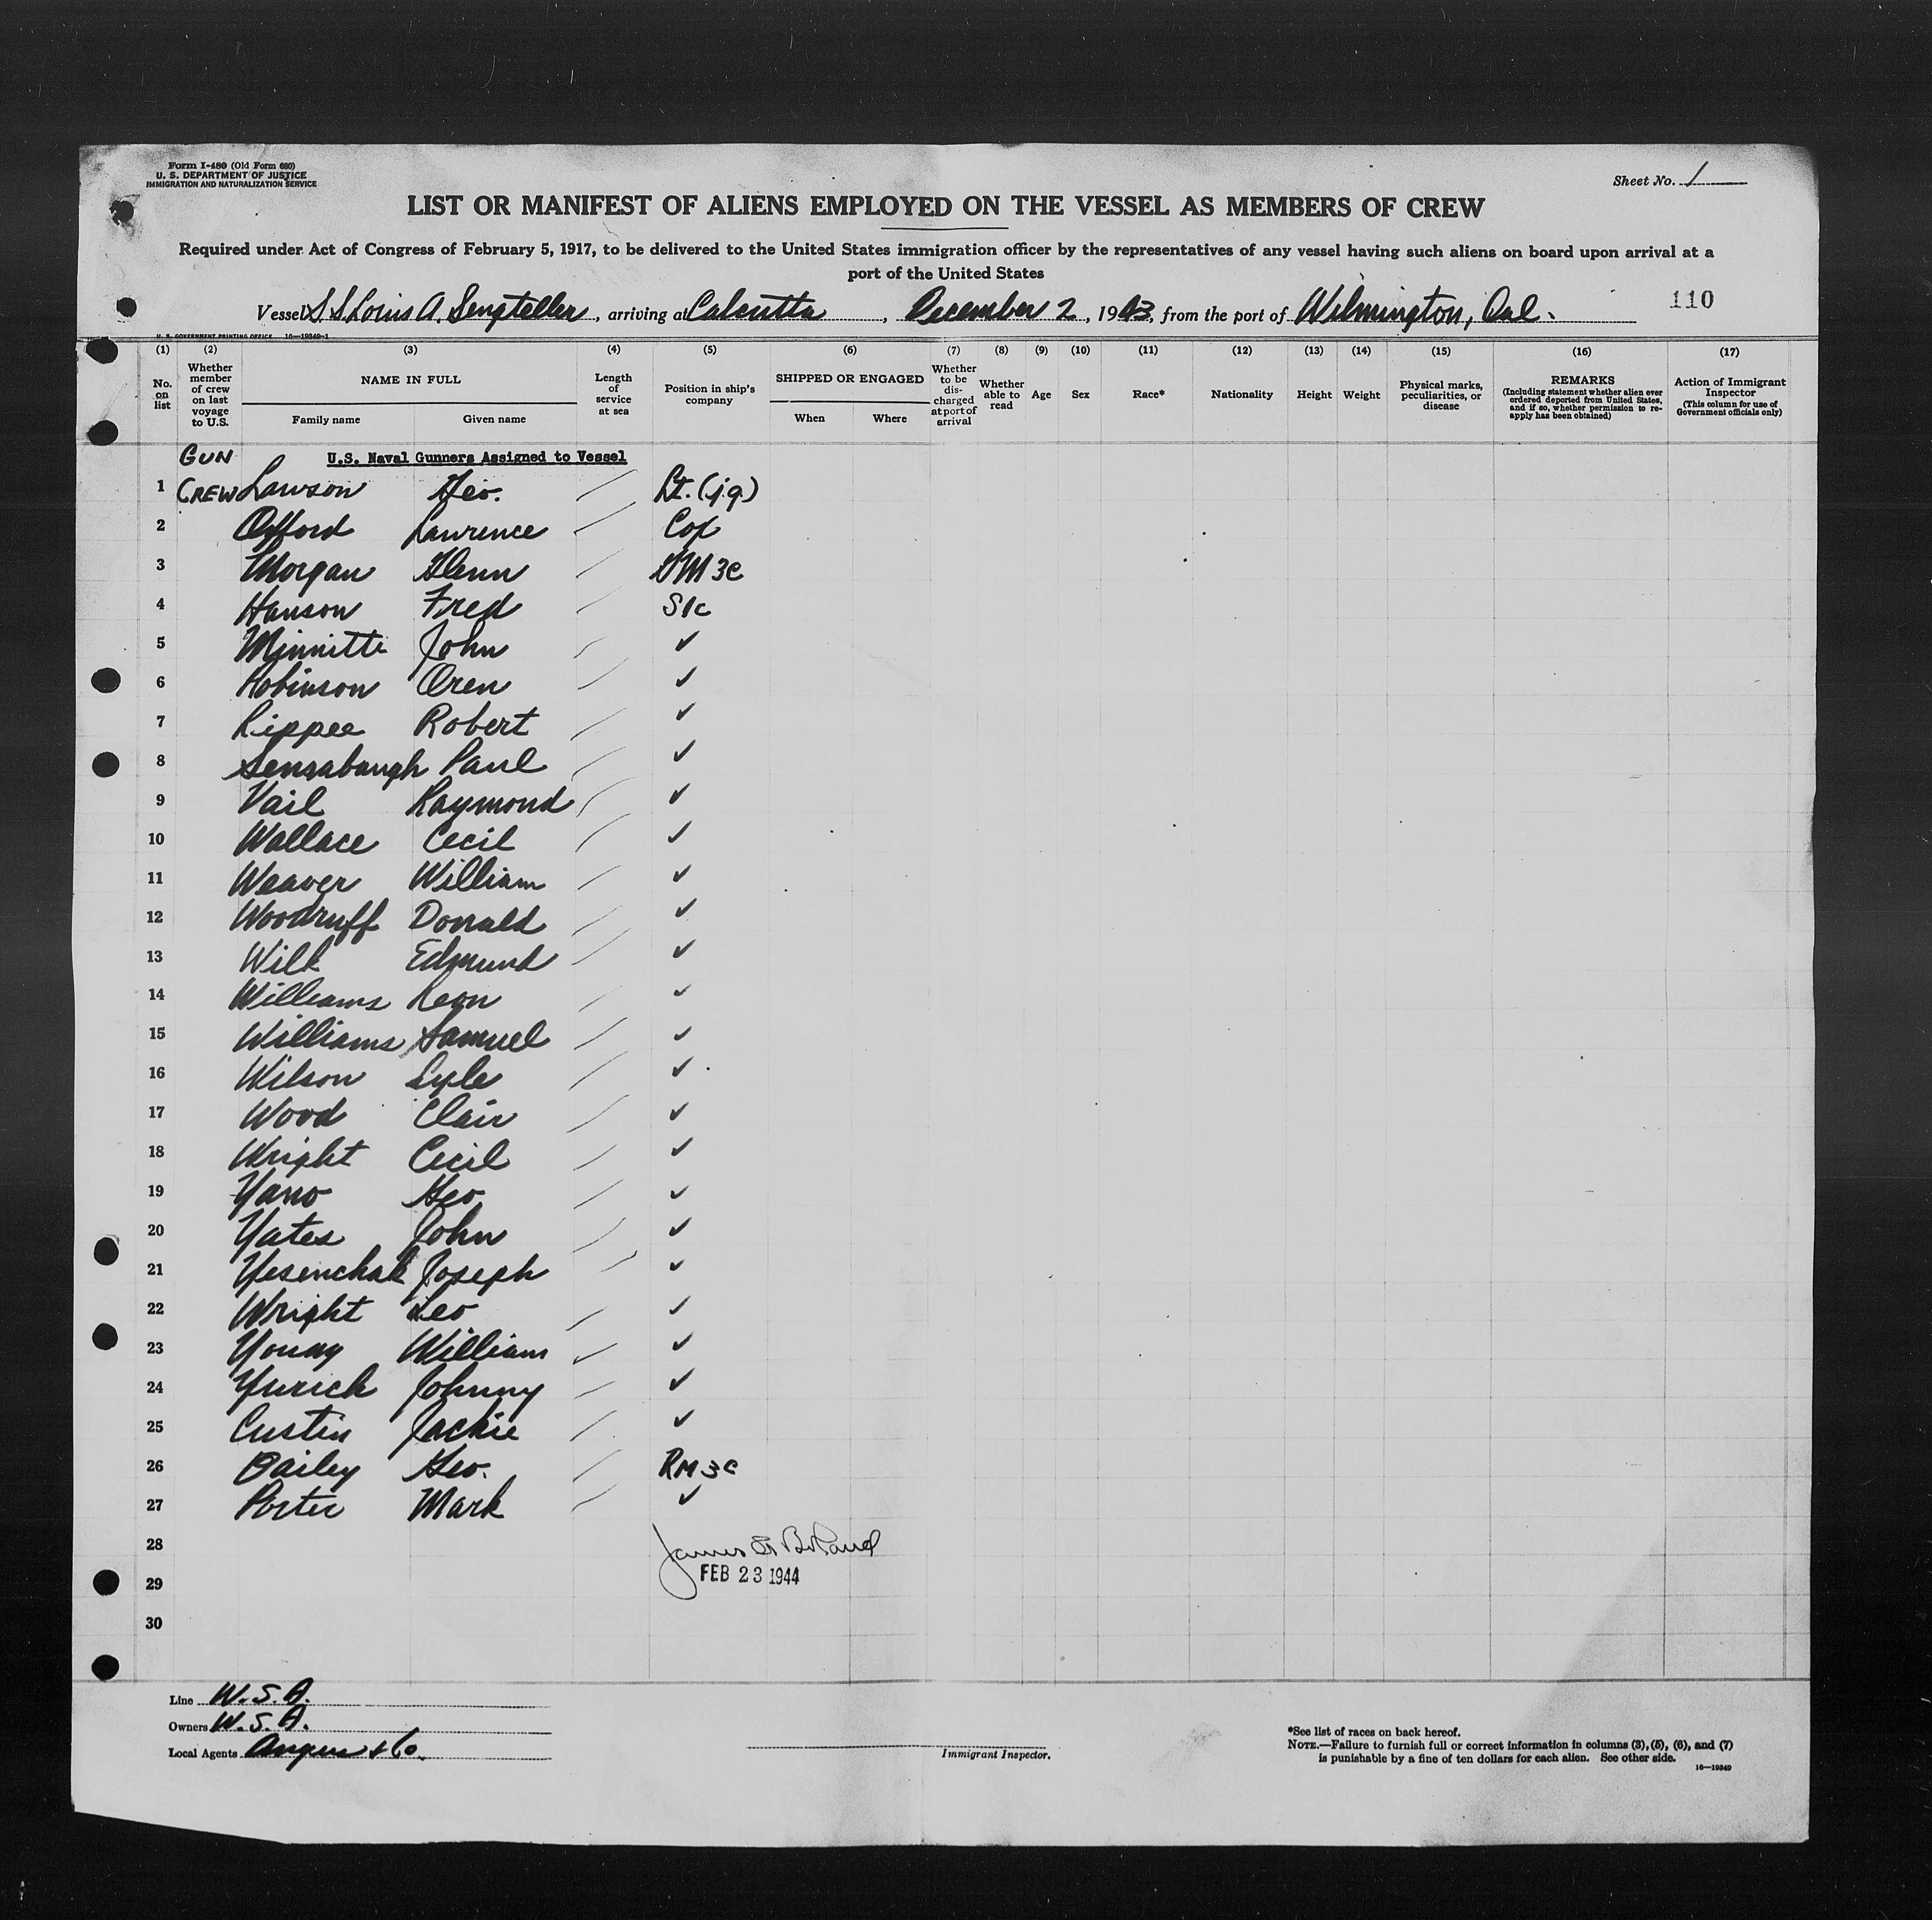 Form I-480 (Old Form 680)
U. S. DEPARTMENT OF JUSTICE
IMMIGRATION AND NATURALIZATION SERVICE
Sheet No. 1
LIST OR MANIFEST OF ALIENS EMPLOYED ON THE VESSEL AS MEMBERS OF CREW
Required under Act of Congress of February 5, 1917, to be delivered to the United States immigration officer by the representatives of any vessel having such aliens on board upon arrival at a
port of the United States
Vessel S.S. Louis A. Sengteller, arriving at Calcutta, December 2, 1943, from the port of Wilmington, Cal.
110
U. S. GOVERNMENT PRINTING OFFICE 16—19349-1
(1) (2) (3) (4) (5) (6) (7) (8) (9) (10) (11) (12) (13) (14) (15) (16) (17)
No. on list
Whether member of crew on last voyage to U.S.
NAME IN FULL
Family name Given name
Length of service at sea
Position in ship's company
SHIPPED OR ENGAGED
When Where
Whether to be discharged at port of arrival
Whether able to read
Age
Sex
Race*
Nationality
Height
Weight
Physical marks, peculiarities, or disease
REMARKS
(Including statement whether alien ever ordered deported from United States, and if so, whether permission to re-apply has been obtained)
Action of Immigrant Inspector
(This column for use of Government officials only)
GUN U.S. Naval Gunners Assigned to Vessel
1 CREW Lawson Geo. Lt. (j.g.)
2 Offord Lawrence Cox
3 Morgan Glenn GM 3c
4 Hanson Fred S1c
5 Minnitti John ✓
6 Robinson Oren ✓
7 Rippee Robert ✓
8 Sensabaugh Paul ✓
9 Vail Raymond ✓
10 Wallace Cecil ✓
11 Weaver William ✓
12 Woodruff Donald ✓
13 Wilk Edmund ✓
14 Williams Leon ✓
15 Williams Samuel ✓
16 Wilson Lyle ✓
17 Wood Clair ✓
18 Wright Cecil ✓
19 Yano Geo. ✓
20 Yates John ✓
21 Yesenchak Joseph ✓
22 Wright Leo ✓
23 Young William ✓
24 Yurich Johnny ✓
25 Custin Jackie ✓
26 Bailey Geo. RM 3c
27 Porter Mark ✓
28 James Boland
29 FEB 23 1944
30
Line W.S.A.
Owners W.S.A.
Local Agents Angus & Co.
Immigrant Inspector.
*See list of races on back hereof.
NOTE.—Failure to furnish full or correct information in columns (3), (5), (6), and (7)
is punishable by a fine of ten dollars for each alien. See other side.
16—19349